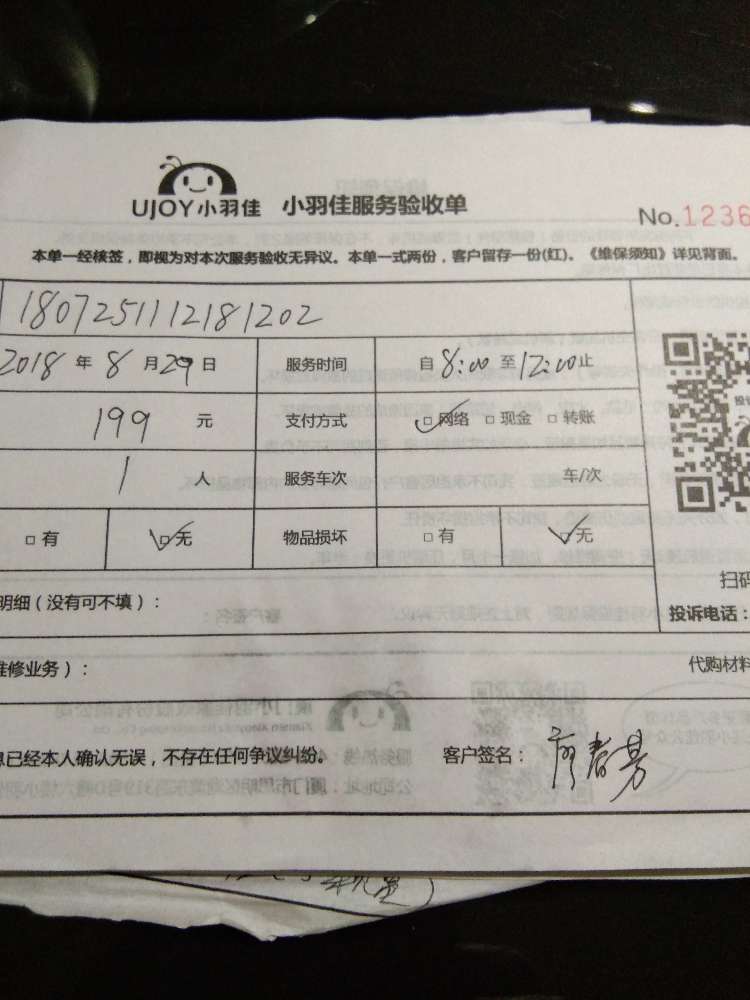 UJOY小羽佳 小羽佳服务验收单
No.1236
本单一经核签，即视为对本次服务验收无异议。本单一式两份，客户留存一份(红)。《维保须知》详见背面。
1807251112181202
2018 年 8 月 29 日 服务时间 自 8:00 至 12:00 止
199 元 支付方式 网络 现金 转账
1 人 服务车次 车/次
有 无 物品损坏 有 无
扫码
明细（没有可不填）：
投诉电话：
维修业务）：
代购材料
息已经本人确认无误，不存在任何争议纠纷。 客户签名：